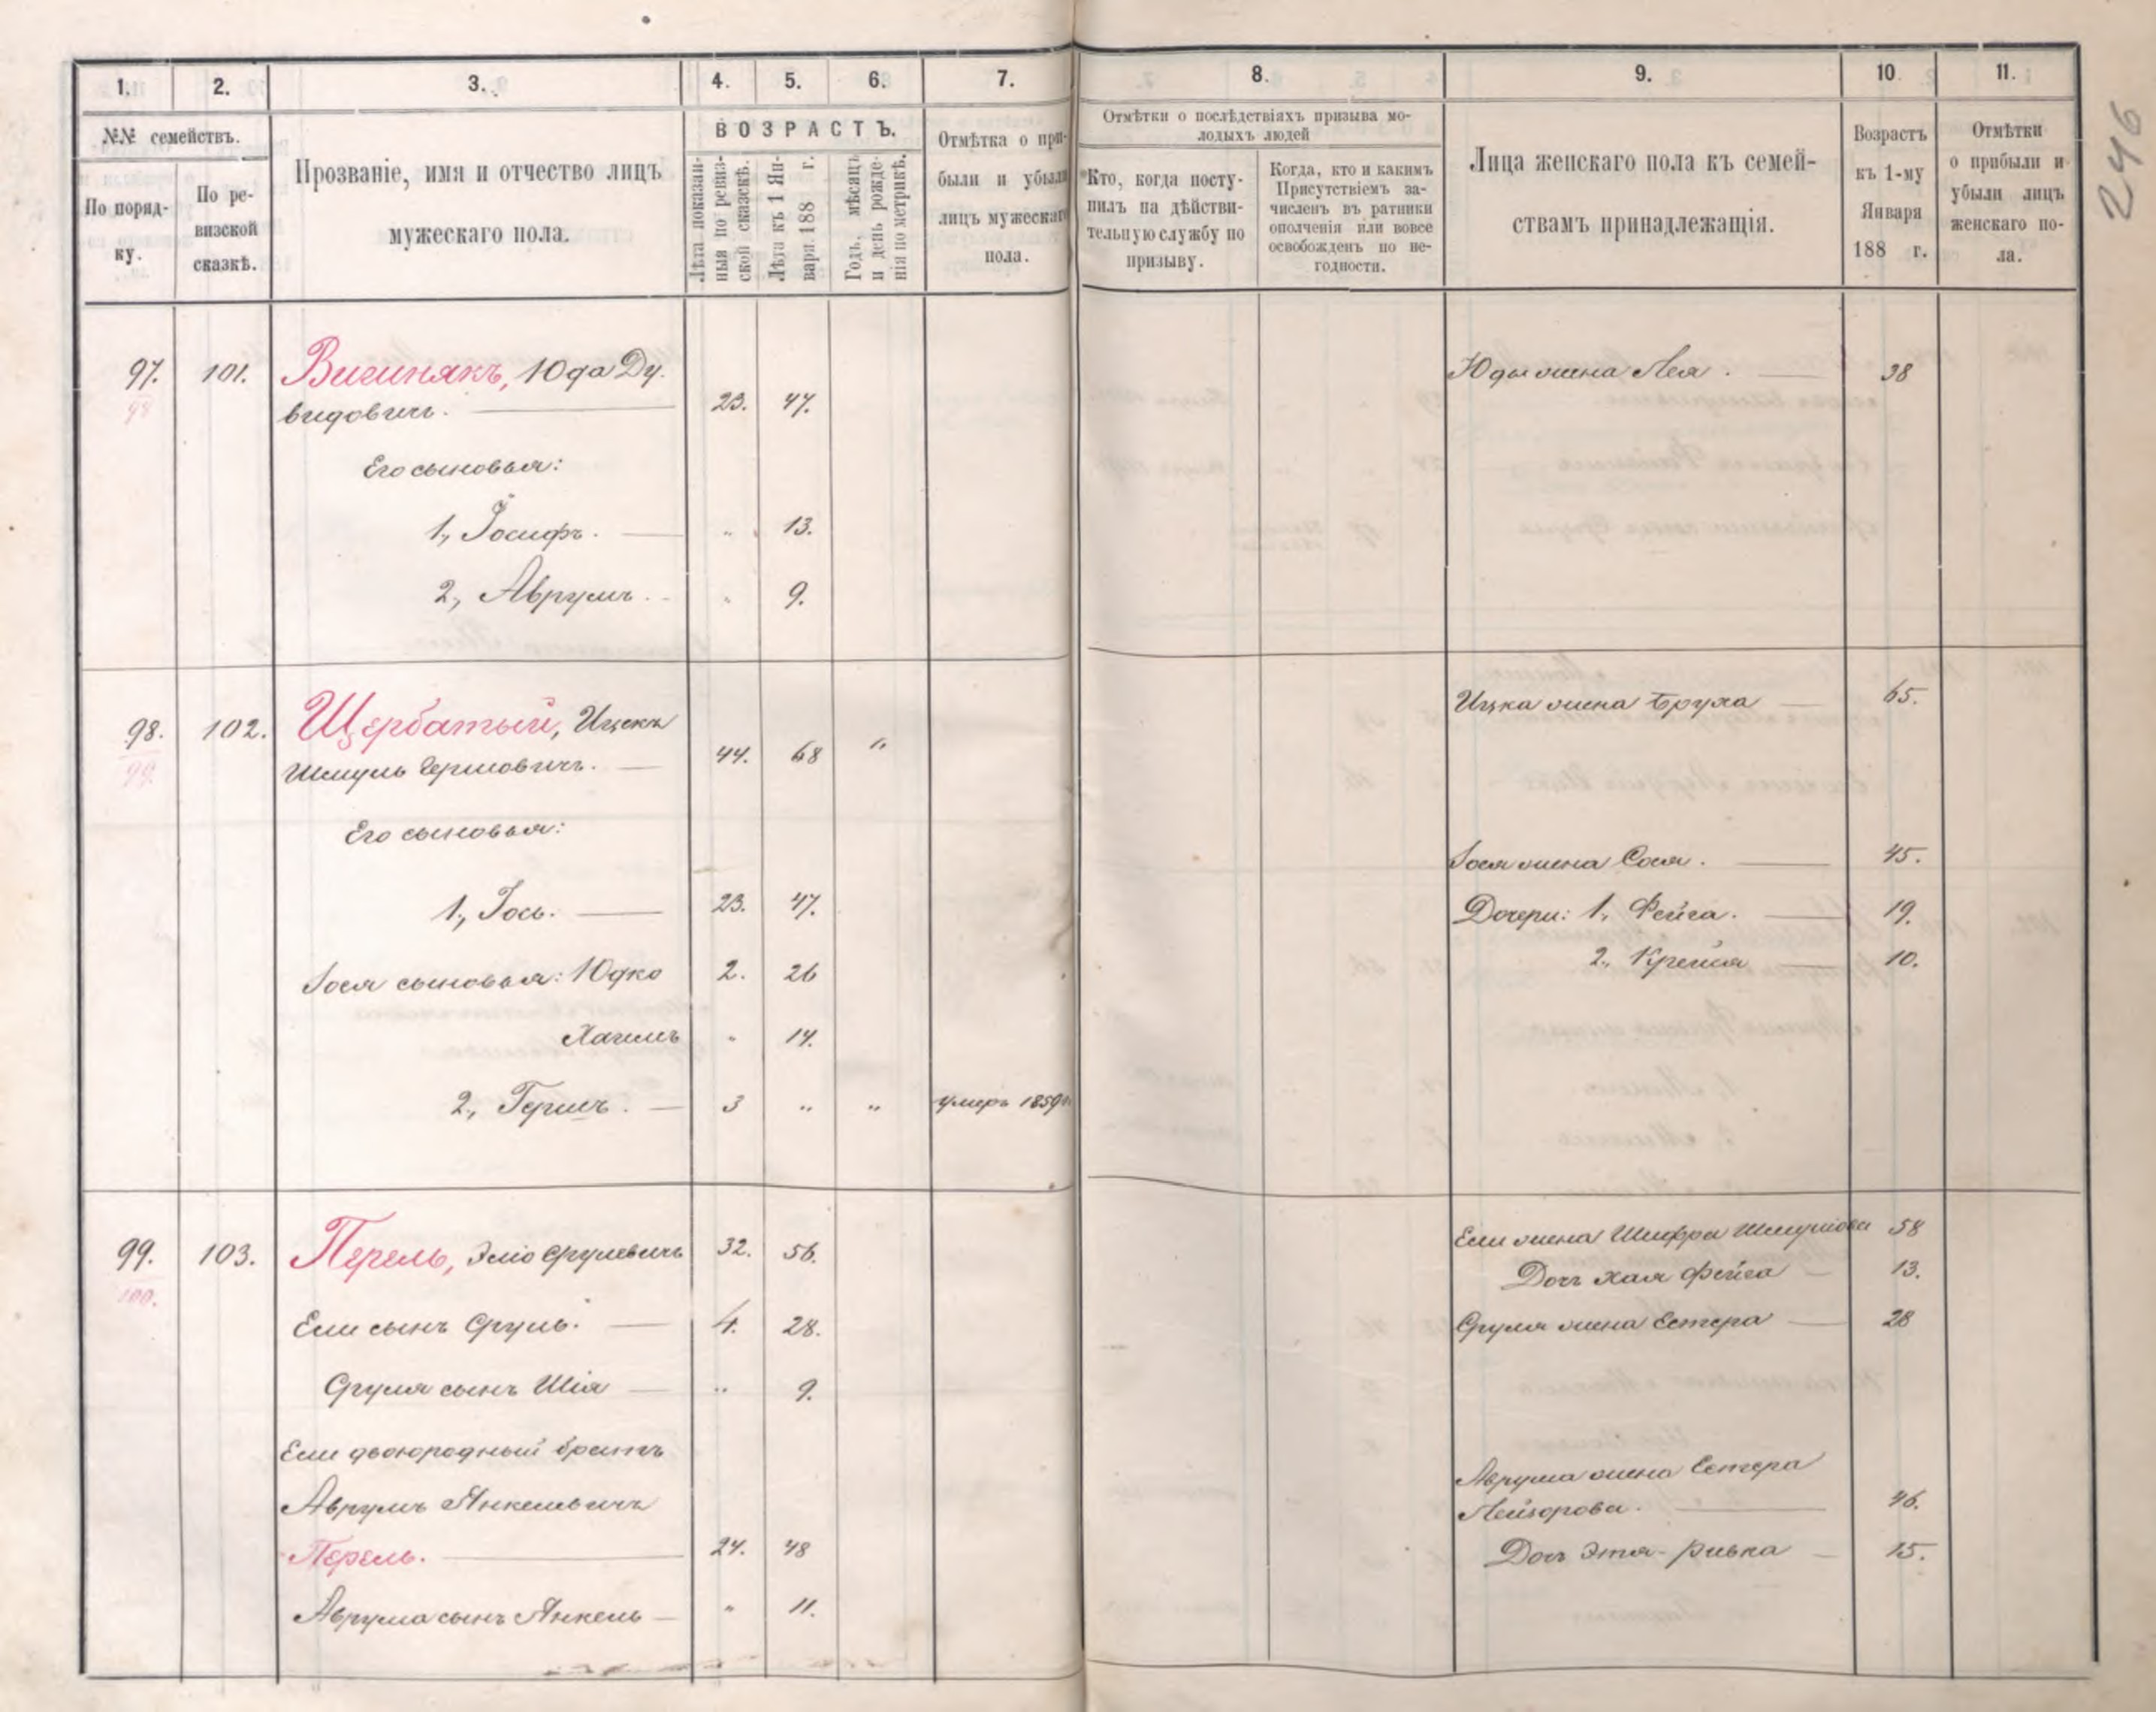 246
1. 2. 3. 4. 5. 6. 7. 8. 9. 10. 11.
№№ семействъ.
По поряд-
ку.
По ре-
визской
сказкѣ.
Прозваніе, имя и отчество лицъ
мужескаго пола.
ВОЗРАСТЪ.
Лѣта показан-
ныя по ревиз-
ской сказкѣ.
Лѣта къ 1 Ян-
варя 188 г.
Годъ, мѣсяцъ
и день рожде-
нія по метрикѣ.
Отмѣтка о при-
были и убыли
лицъ мужескаго
пола.
Отмѣтки о послѣдствіяхъ призыва мо-
лодыхъ людей
Кто, когда посту-
пилъ на дѣйстви-
тельную службу по
призыву.
Когда, кто и какимъ
Присутствіемъ за-
численъ въ ратники
ополченія или вовсе
освобожденъ по не-
годности.
Лица женскаго пола къ семей-
ствамъ принадлежащія.
Возрастъ
къ 1-му
Января
188 г.
Отмѣтки
о прибыли и
убыли лицъ
женскаго по-
ла.
97. 101. Вигинякъ, Юда Ду-
98
видовичъ. 23. 47.
Его сыновья:
1, Іосифъ. " 13.
2, Аврумъ. " 9.
Юды жена Лея. 38
98. 102. Щербатый, Ицекъ
99.
Шмуль Гершовичъ. 44. 68 "
Его сыновья:
1, Іось. 23. 47.
Іося сыновья: Юдко 2. 26
Хаимъ " 14.
2, Гершъ. 3 " " умеръ 1859
Ицка жена Бруха 65.
Іося жена Сося. 45.
Дочери: 1, Фейга. 19.
2, Крейня 10.
99. 103. Перель, Эліо Срулевичъ 32. 56.
100.
Ели сынъ Сруль. 4. 28.
Сруля сынъ Шія " 9.
Ели двоюродный братъ
Аврумъ Янкелевичъ
Перель. 24. 48
Аврума сынъ Янкель " 11.
Ели жена Шифра Шмулова 58
Дочь Хая Фейга 13.
Сруля жена Естера 28
Аврума жена Естера
Лейзорова. 46.
Дочь Этя-Ривка 15.